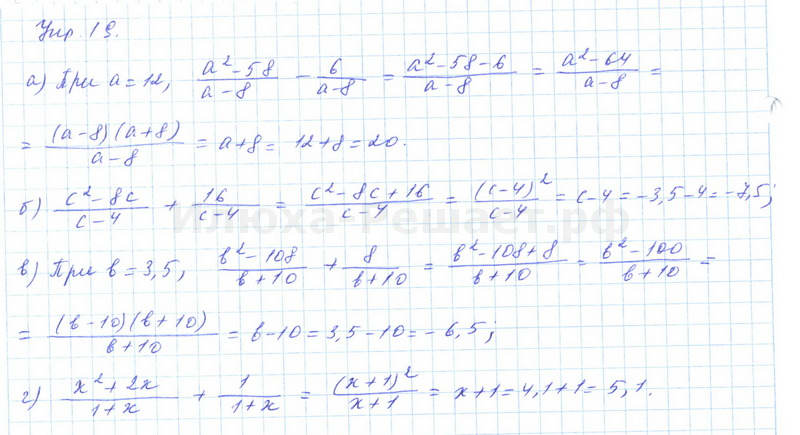 Упр. 19.
а) При a = 12, (a² - 58)/(a - 8) - 6/(a - 8) = (a² - 58 - 6)/(a - 8) = (a² - 64)/(a - 8) =
= (a - 8)(a + 8)/(a - 8) = a + 8 = 12 + 8 = 20.
б) (c² - 8c)/(c - 4) + 16/(c - 4) = (c² - 8c + 16)/(c - 4) = (c - 4)²/(c - 4) = c - 4 = -3,5 - 4 = -7,5;
Илюха-Решает.рф
в) При b = 3,5, (b² - 108)/(b + 10) + 8/(b + 10) = (b² - 108 + 8)/(b + 10) = (b² - 100)/(b + 10) =
= (b - 10)(b + 10)/(b + 10) = b - 10 = 3,5 - 10 = -6,5;
г) (x² + 2x)/(1 + x) + 1/(1 + x) = (x + 1)²/(x + 1) = x + 1 = 4,1 + 1 = 5,1.